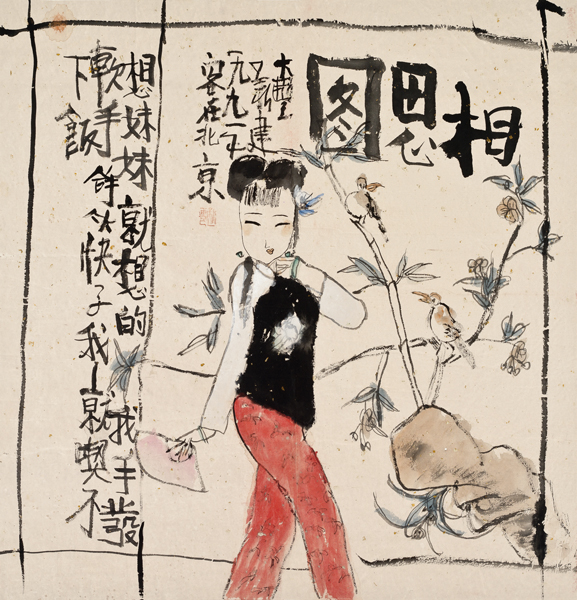 相思图
大豐
新建
一九九一年
客在北京
想妹妹就想的我手發
軟手快子我就喫不
下飯